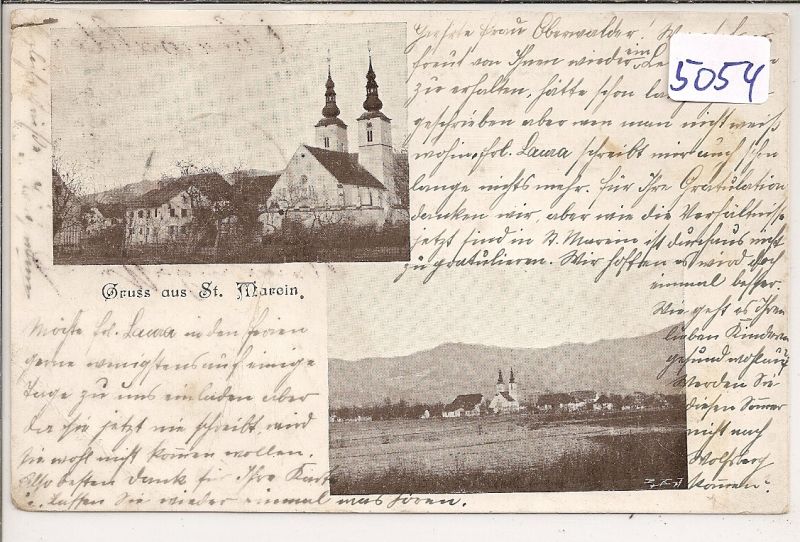 Geehrte Frau Oberwalder!
freut von Ihnen wieder ein
zu erhalten, hätte schon
geschrieben aber wen man nicht weiß
wohin. Frl. Laura schreibt mir auch schon
lange nichts mehr. Für Ihre Gratulation
danken wir, aber wie die Verhältnisse
jetzt sind in St. Marein ist durchaus nicht
zu gratulieren. Wir hoffen es wird doch
einmal besser.
Wie geht es Ihren
lieben Kindern
gesund wohlauf?
Werden Sie
diesen Sommer
nicht nach
Wolfsberg
kommen?
5054
Gruss aus St. Marein.
Möchte Frl. Laura in den Ferien
gerne wenigstens auf einige
Tage zu uns einladen aber
da sie jetzt nie schreibt, wird
sie wohl nicht kommen wollen.
Also besten Dank für Ihre Karte
lassen Sie wieder einmal was hören.